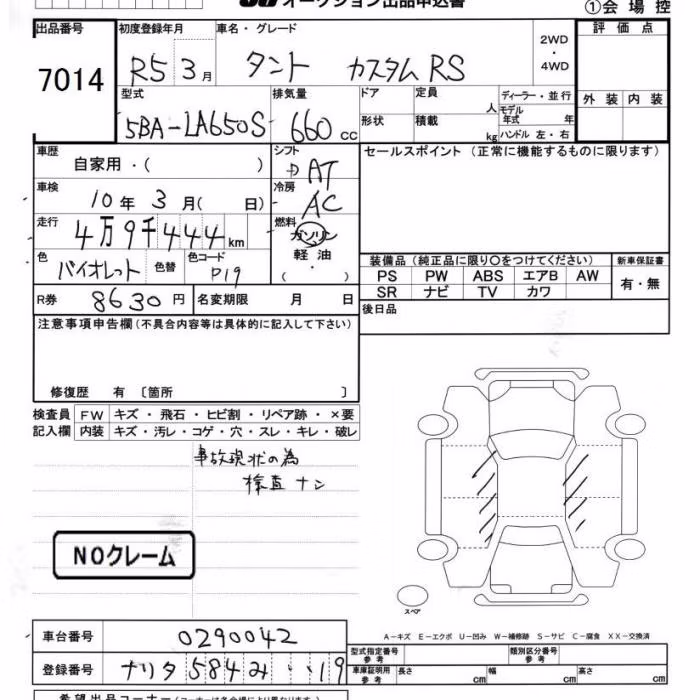 オークション出品申込書
①会場控
出品番号 7014
初度登録年月 R5 3月
車名・グレード タント カスタム RS
2WD・4WD
評価点
外装 内装
型式 5BA-LA650S
排気量 660 cc
ドア
形状
定員 人
積載 kg
ディーラー・並行
モデル年式 年
ハンドル 左・右
車歴 自家用・( )
シフト AT
セールスポイント(正常に機能するものに限ります)
車検 10年 3月( 日)
冷房 AC
走行 4万9千444km
燃料 ガソリン
軽油
・
( )
色 バイオレット 色替 色コード P19
装備品(純正品に限り○をつけてください)
新車保証書
PS PW ABS エアB AW
SR ナビ TV カワ
有・無
R券 8630円 名変期限 月 日
後日品
注意事項申告欄(不具合内容等は具体的に記入して下さい)
修復歴 有 〔箇所 〕
検査員 FW キズ・飛石・ヒビ割・リペア跡・×要
記入欄 内装 キズ・汚レ・コゲ・穴・スレ・キレ・破レ
事故現状の為
検査ナシ
NOクレーム
スペア
A-キズ E-エクボ U-凹み W-補修跡 S-サビ C-腐食 XX-交換済
車台番号 0290042
登録番号 ナリタ 584 み ・・19
型式指定番号 参考
類別区分番号 参考
車庫証明用 参考 長さ cm 幅 cm 高さ cm
希望出品コーナー(コーナーは各会場により異なります)